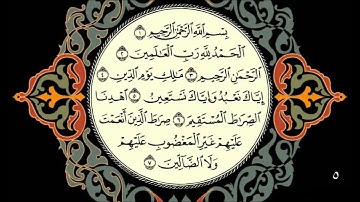 بِسْمِ اللَّهِ الرَّحْمَٰنِ الرَّحِيمِ ١
الْحَمْدُ لِلَّهِ رَبِّ الْعَالَمِينَ ٢
الرَّحْمَٰنِ الرَّحِيمِ ٣ مَالِكِ يَوْمِ الدِّينِ ٤
إِيَّاكَ نَعْبُدُ وَإِيَّاكَ نَسْتَعِينُ ٥ اهْدِنَا
الصِّرَاطَ الْمُسْتَقِيمَ ٦ صِرَاطَ الَّذِينَ أَنْعَمْتَ
عَلَيْهِمْ غَيْرِ الْمَغْضُوبِ عَلَيْهِمْ
وَلَا الضَّالِّينَ ٧
٥